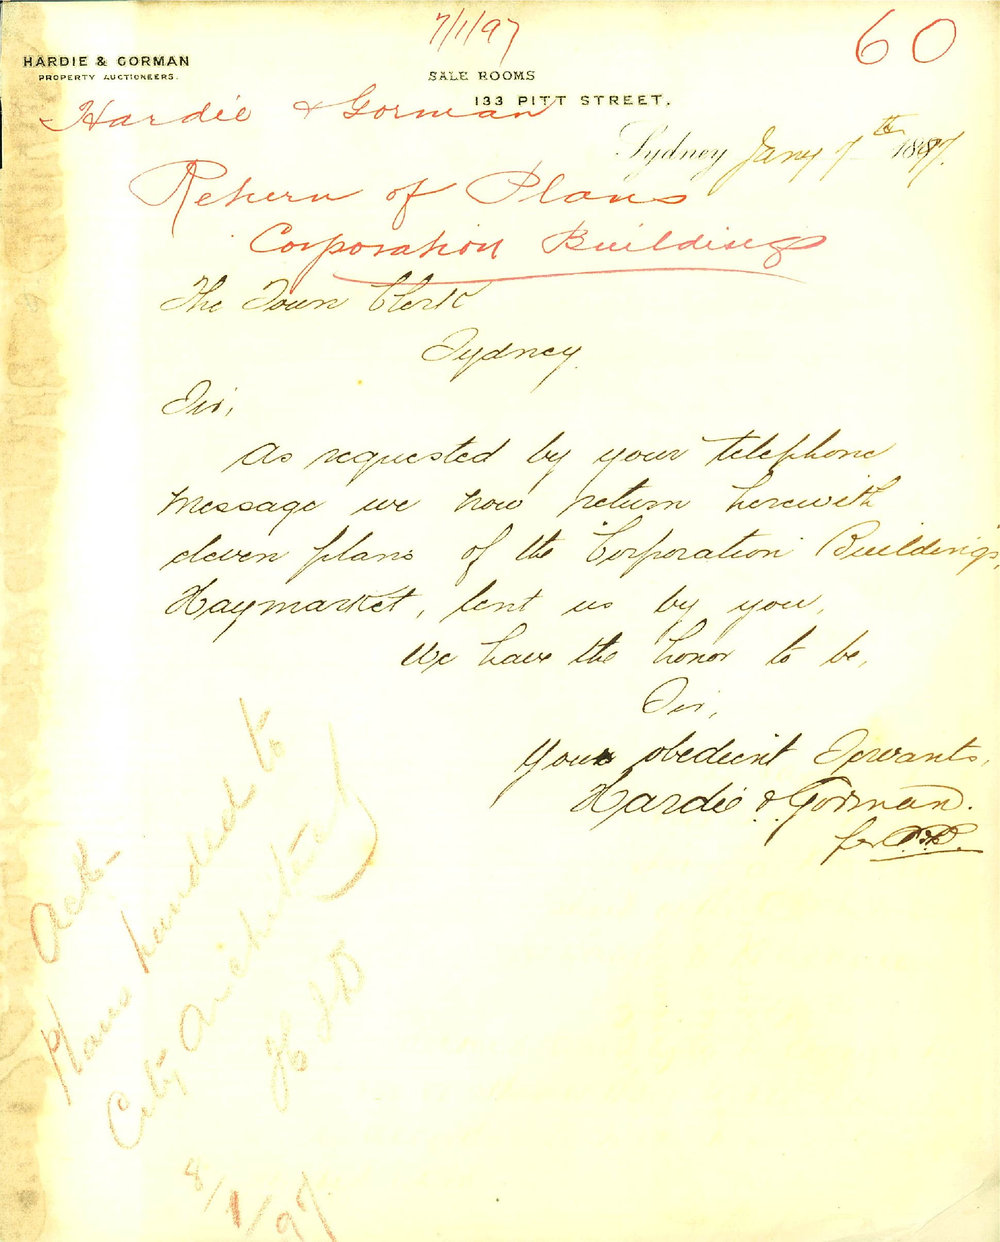 7/1/97
60
HARDIE & GORMAN
PROPERTY AUCTIONEERS.
SALE ROOMS
133 PITT STREET.
Hardie & Gorman
Sydney Jany 7th 1897.
Return of Plans
Corporation Buildings
The Town Clerk
Sydney.
Sir,
As requested by your telephone
message we now return herewith
eleven plans of the "Corporation Buildings",
Haymarket, lent us by you.
We have the honor to be,
Sir,
Your obedient Servants,
Hardie & Gorman.
per
Ack-
Plans handed to
City Architect
8/1/97